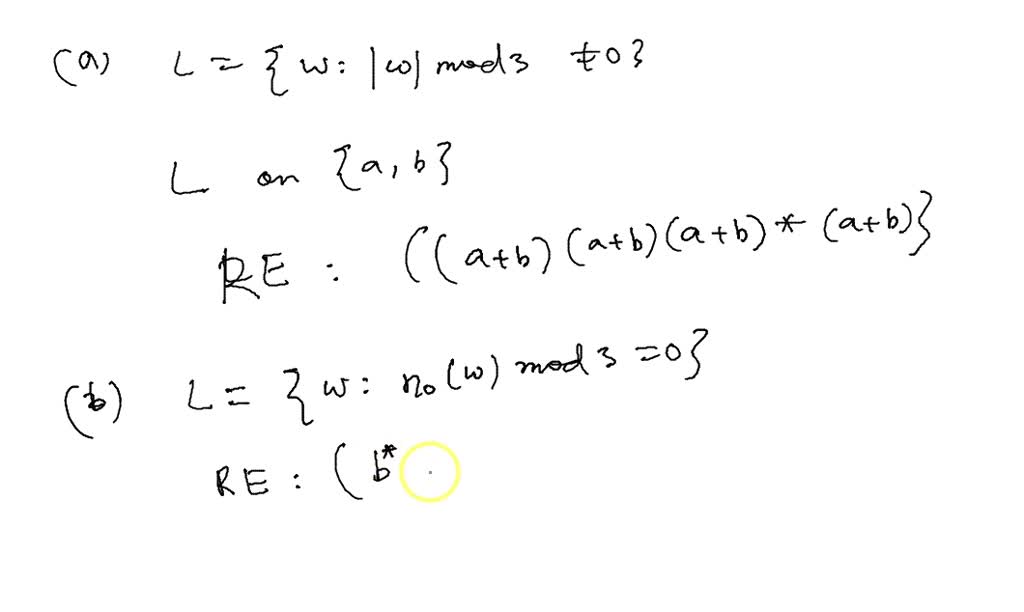 (a) L = {w: |w| mod 3 ≠ 0}
L on {a, b}
RE : ((a+b)(a+b)(a+b)* (a+b)}
(b) L = {w: n₀(w) mod 3 = 0}
RE : (b*